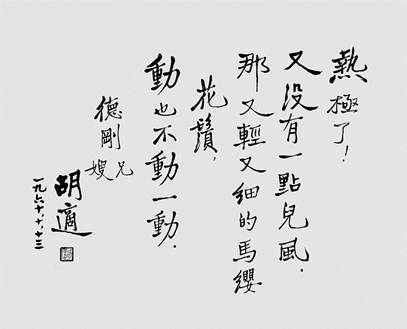 熱極了！
又没有一點兒風．
那又輕又細的馬纓
花鬚，
動也不動一動．
德剛兄
嫂
胡適
一九六十，十，十三